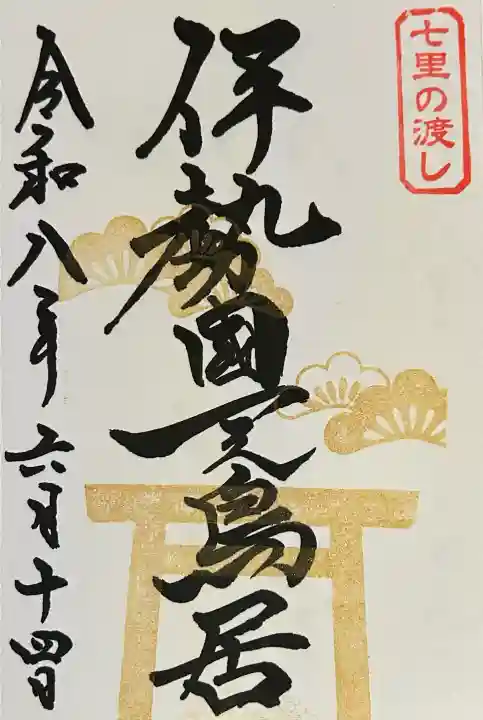 七里の渡し
伊勢國一之鳥居
令和八年六月十四日